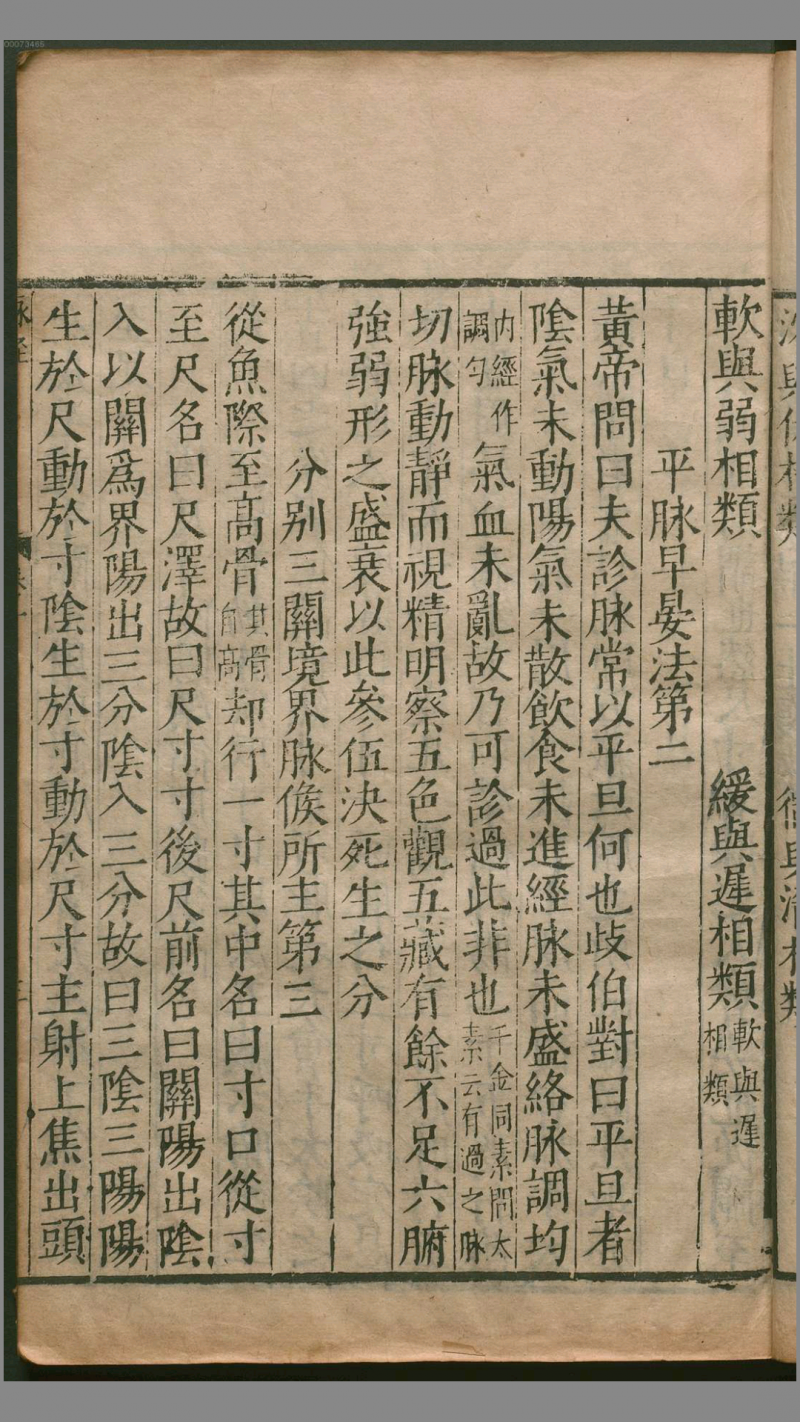 00073465
軟與弱相類　緩與遲相類軟與遲相類
平脉早晏法第二
黃帝問曰夫診脉常以平旦何也歧伯對曰平旦者
陰氣未動陽氣未散飲食未進經脉未盛絡脉調均
内經作調勻氣血未亂故乃可診過此非也千金同素問太素云有過之脉
切脉動靜而視精明察五色觀五藏有餘不足六腑
強弱形之盛衰以此參伍決死生之分
分别三關境界脉候所主第三
從魚際至高骨其骨自高却行一寸其中名曰寸口從寸
至尺名曰尺澤故曰尺寸寸後尺前名曰關陽出陰
入以關爲界陽出三分陰入三分故曰三陰三陽陽
生於尺動於寸陰生於寸動於尺寸主射上焦出頭